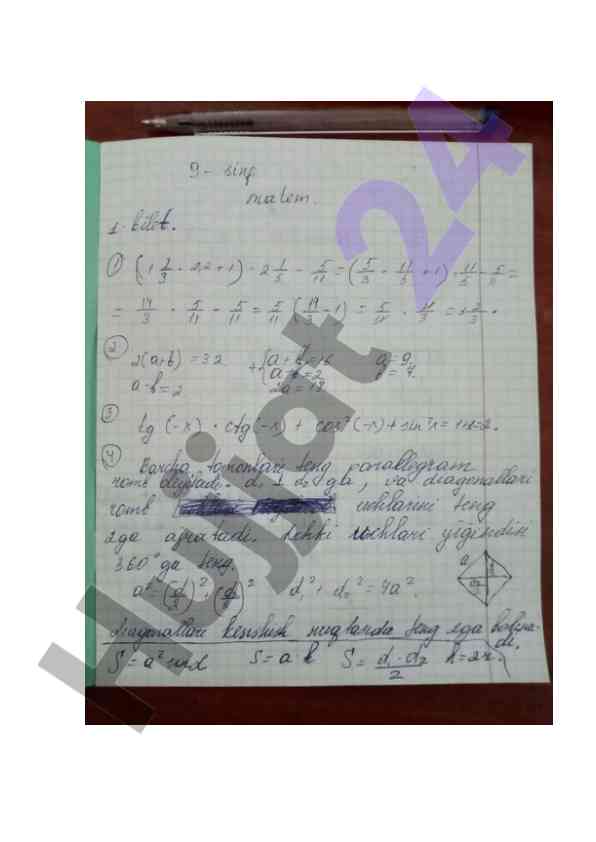 9 - sinf
matem.
1- bilet.
① (1 2/3 · 2,2 + 1) · 2 1/5 - 5/11 = (5/3 · 11/5 + 1) · 11/5 - 5/11 =
= 14/3 · 5/11 - 5/11 = 5/11 (14/3 - 1) = 5/11 · 11/3 = 1 2/3.
② 2(a+b) = 32 + {a + b = 16 a = 9
a-b = 2 a - b = 2 b = 7
2a = 18
③ tg (-x) · ctg (-x) + cos² (-x) + sin² x = 1+1=2.
④ Barcha tomonlari teng parallegram
romb deyiladi. d₁ ⊥ d₂ ga, va diagonallari
romb uchlarini teng
2 ga ajratadi. Ichki uchlari yigindisi
360° ga teng.
a² = (d/2)² + (d/2)² d₁² + d₂² = 4a².
diagonallari kesishish nuqtasida teng 2ga bo'lina-
di.
S = a² sinα S = a h S = d₁ · d₂/2 h = 2r.
Hujjat 24